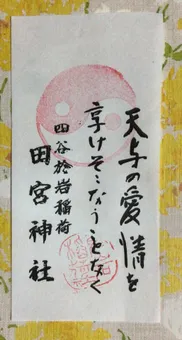 天与の愛情を
享けそこなうことなく
四谷於岩稲荷
田宮神社